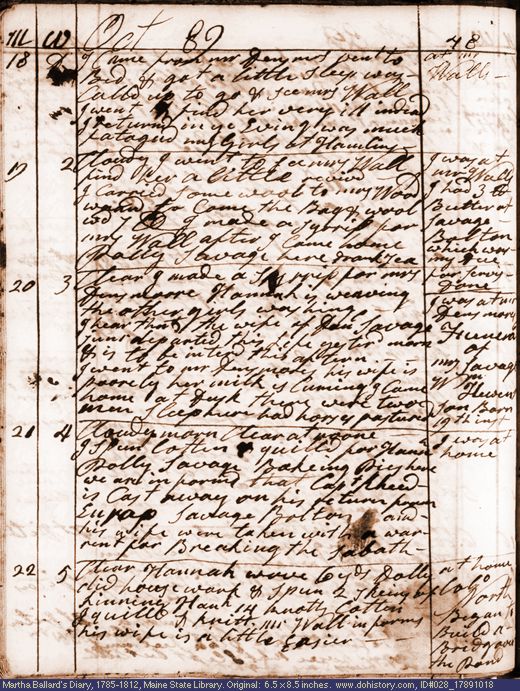 m W Oct 89 48
18 I Came from mr Densmors went to
Bed & got a little sleep was
Calld up to go & see mrs Wall
I went & find her very ill indeed
I returnd in ye Evng I was much
Fatagud my Girls at Hamlins
at mr
Walls
19 2 Cloudy I went to see mrs Wall
find her a little
I Carried some wool to mrs Wood
ward to Come the Bag & wool
I made a syrrip for
mrs Wall after I Came home
Dolly Savage here drank Tea
I was at
mr Walls
I had 3 lb
Butter of
Savage
Bolton
which was
my due
for
Done
20 3 Clear I made a syrrip for mrs
Densmoore Hannah is weaving
the other girls
I hear that the wife of Dan Savage
Junr departed this life yesterd morn
& is to be intred this aftern
I went to mr Densmores his wife is
poorely her milk is Cuming I Came
home at Dusk there were two
men sleep here had horses pastured
I was at mr
Densmors
Funeral
of
mrs Savage
Wm
Hewens
Son Born
19 inst
21 4 Cloudy morn Clear at noone
I Spun Cotton & quilld for Hanah
Dolly Savage Bakeing Pies here
we are informd that Capt
is Cast away on his return from
Savage Bolton and
his wife were taken with a war
rent for Breaking the Sabath
I was at
home
22 5 Clear Hannah wove 6 yds Dolly
did house work & Spun 2 Skeins of
linning Hank 14 knotts Cotton
I quilld & knitt mr Wall informs
his wife is a little Easier
at home
Colo
North
Began to
Build a
Bridg over
the Pond
Martha Ballard's Diary, 1785-1812, Maine State Library. Original: 6.5 x 8.5 inches. www.dohistory.com, ID#028_17891018